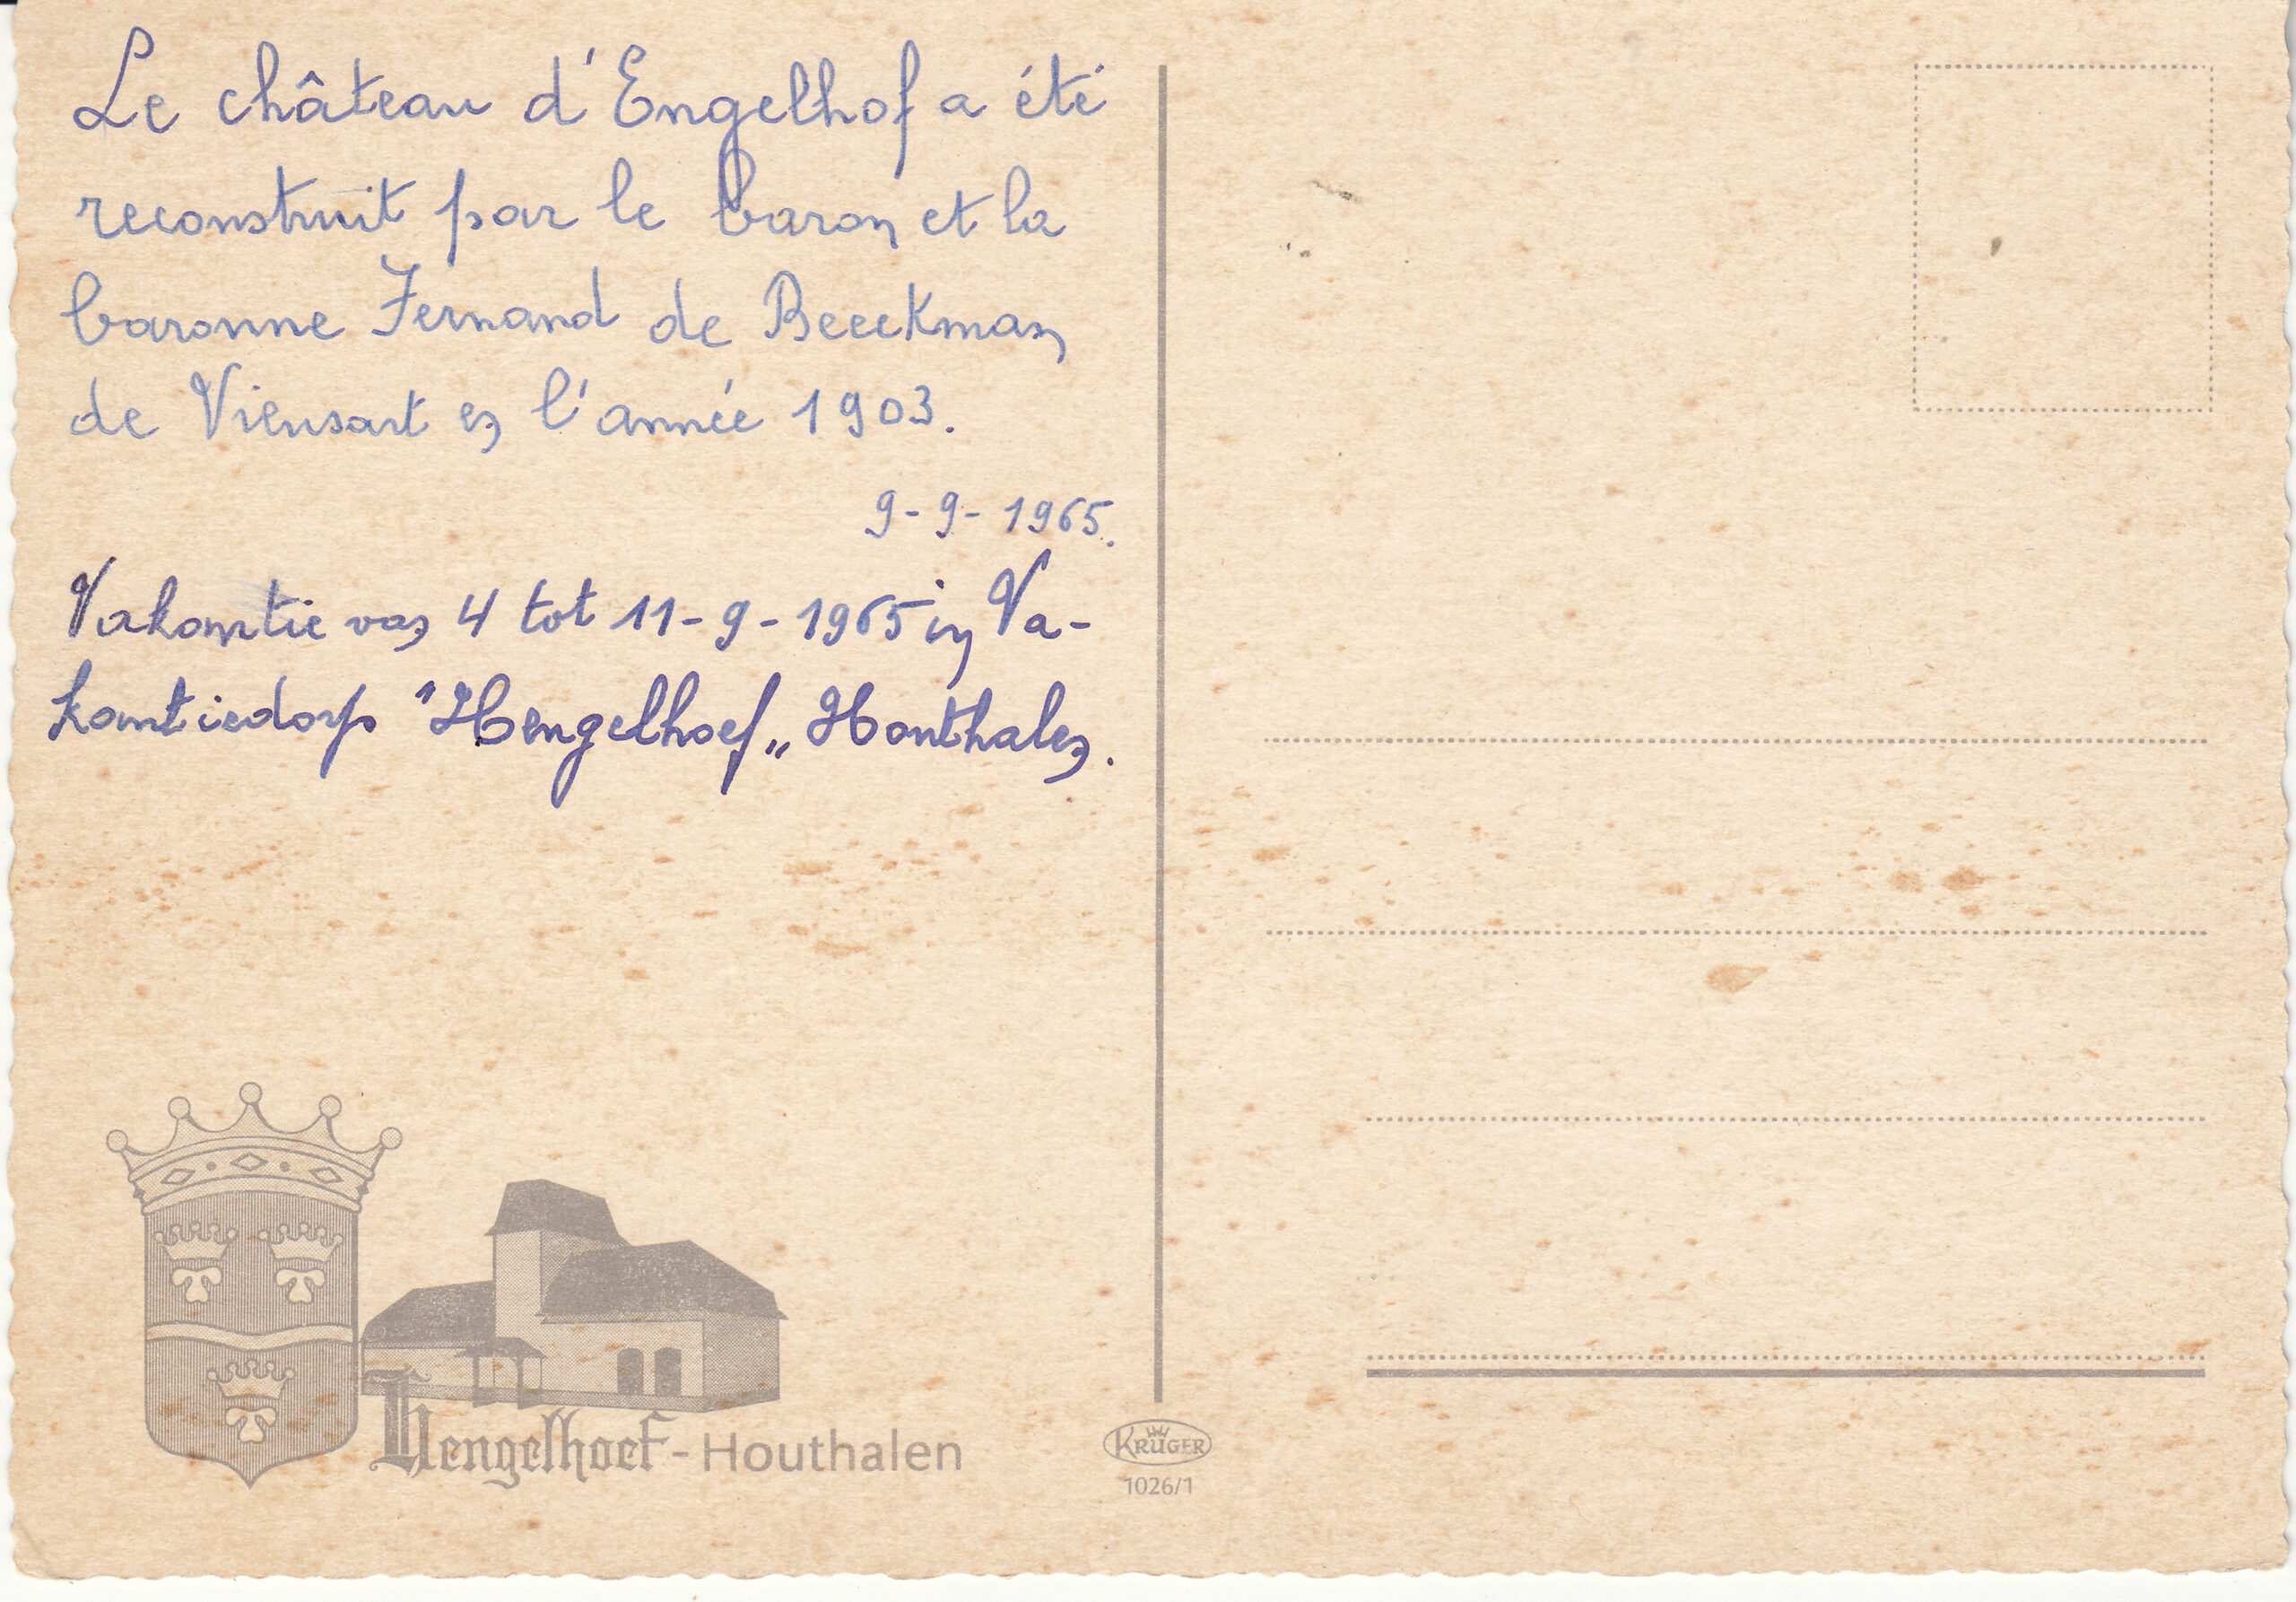 Le château d'Engelhof a été
reconstruit par le baron et la
baronne Fernand de Beeckman
de Vieusart en l'année 1903.
9-9-1965.
Vakantie van 4 tot 11-9-1965 in Va-
kantiedorp "Hengelhoef„ Houthalen.
Hengelhoef - Houthalen
KRÜGER
1026/1